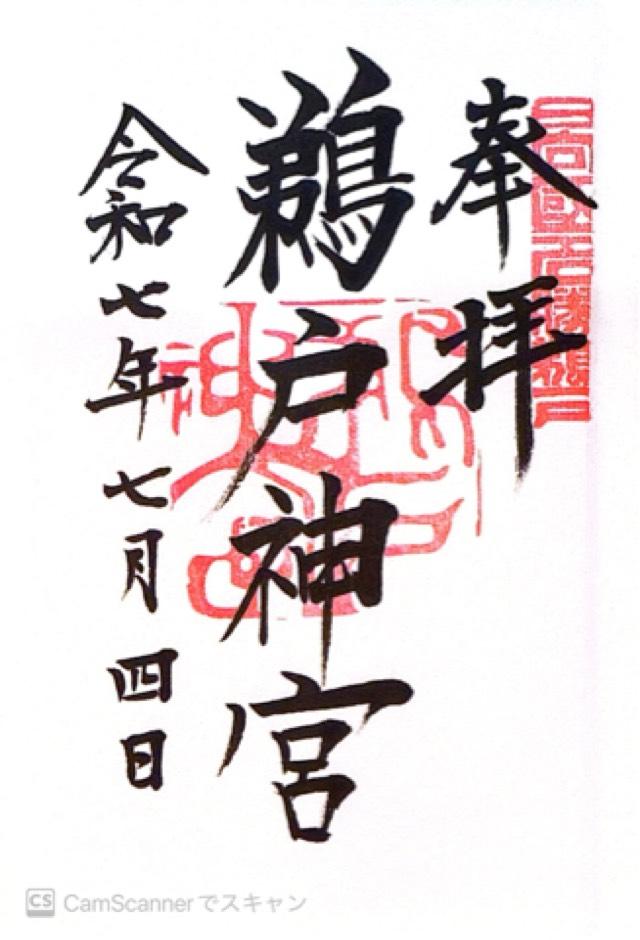 奉拝
鵜戸神宮
令和七年七月四日
CS CamScannerでスキャン